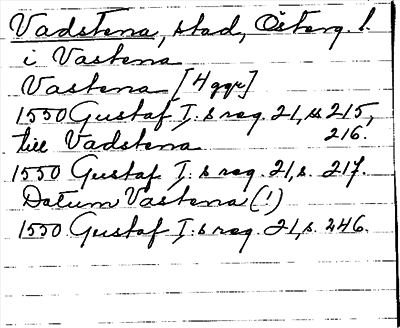 Vadstena, stad, Österg. l.
i Vastena
Vastena [4 ggr]
1550 Gustaf I:s reg. 21, ss 215,
216.
till Vadstena
1550 Gustaf I:s reg. 21, s. 217.
Datum Vastena (!)
1550 Gustaf I:s reg. 21, s. 246.